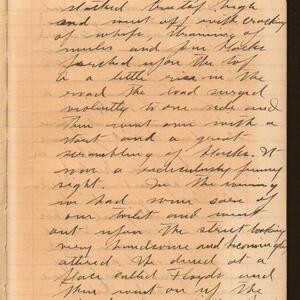 stacked twenty high
and went off with cracking
of whips, straining of
mules and five blacks
perched upon the top
in a little rise in the
road the load surged
violently to one side and
then went over with a
start and a great
scrambling of blacks. It
was a ridiculously funny
sight. In the evening
we had some care of
our toilet and went
out upon the street looking
very handsome and becomingly
attired We dined at a
place called Floyds and
then went on up the